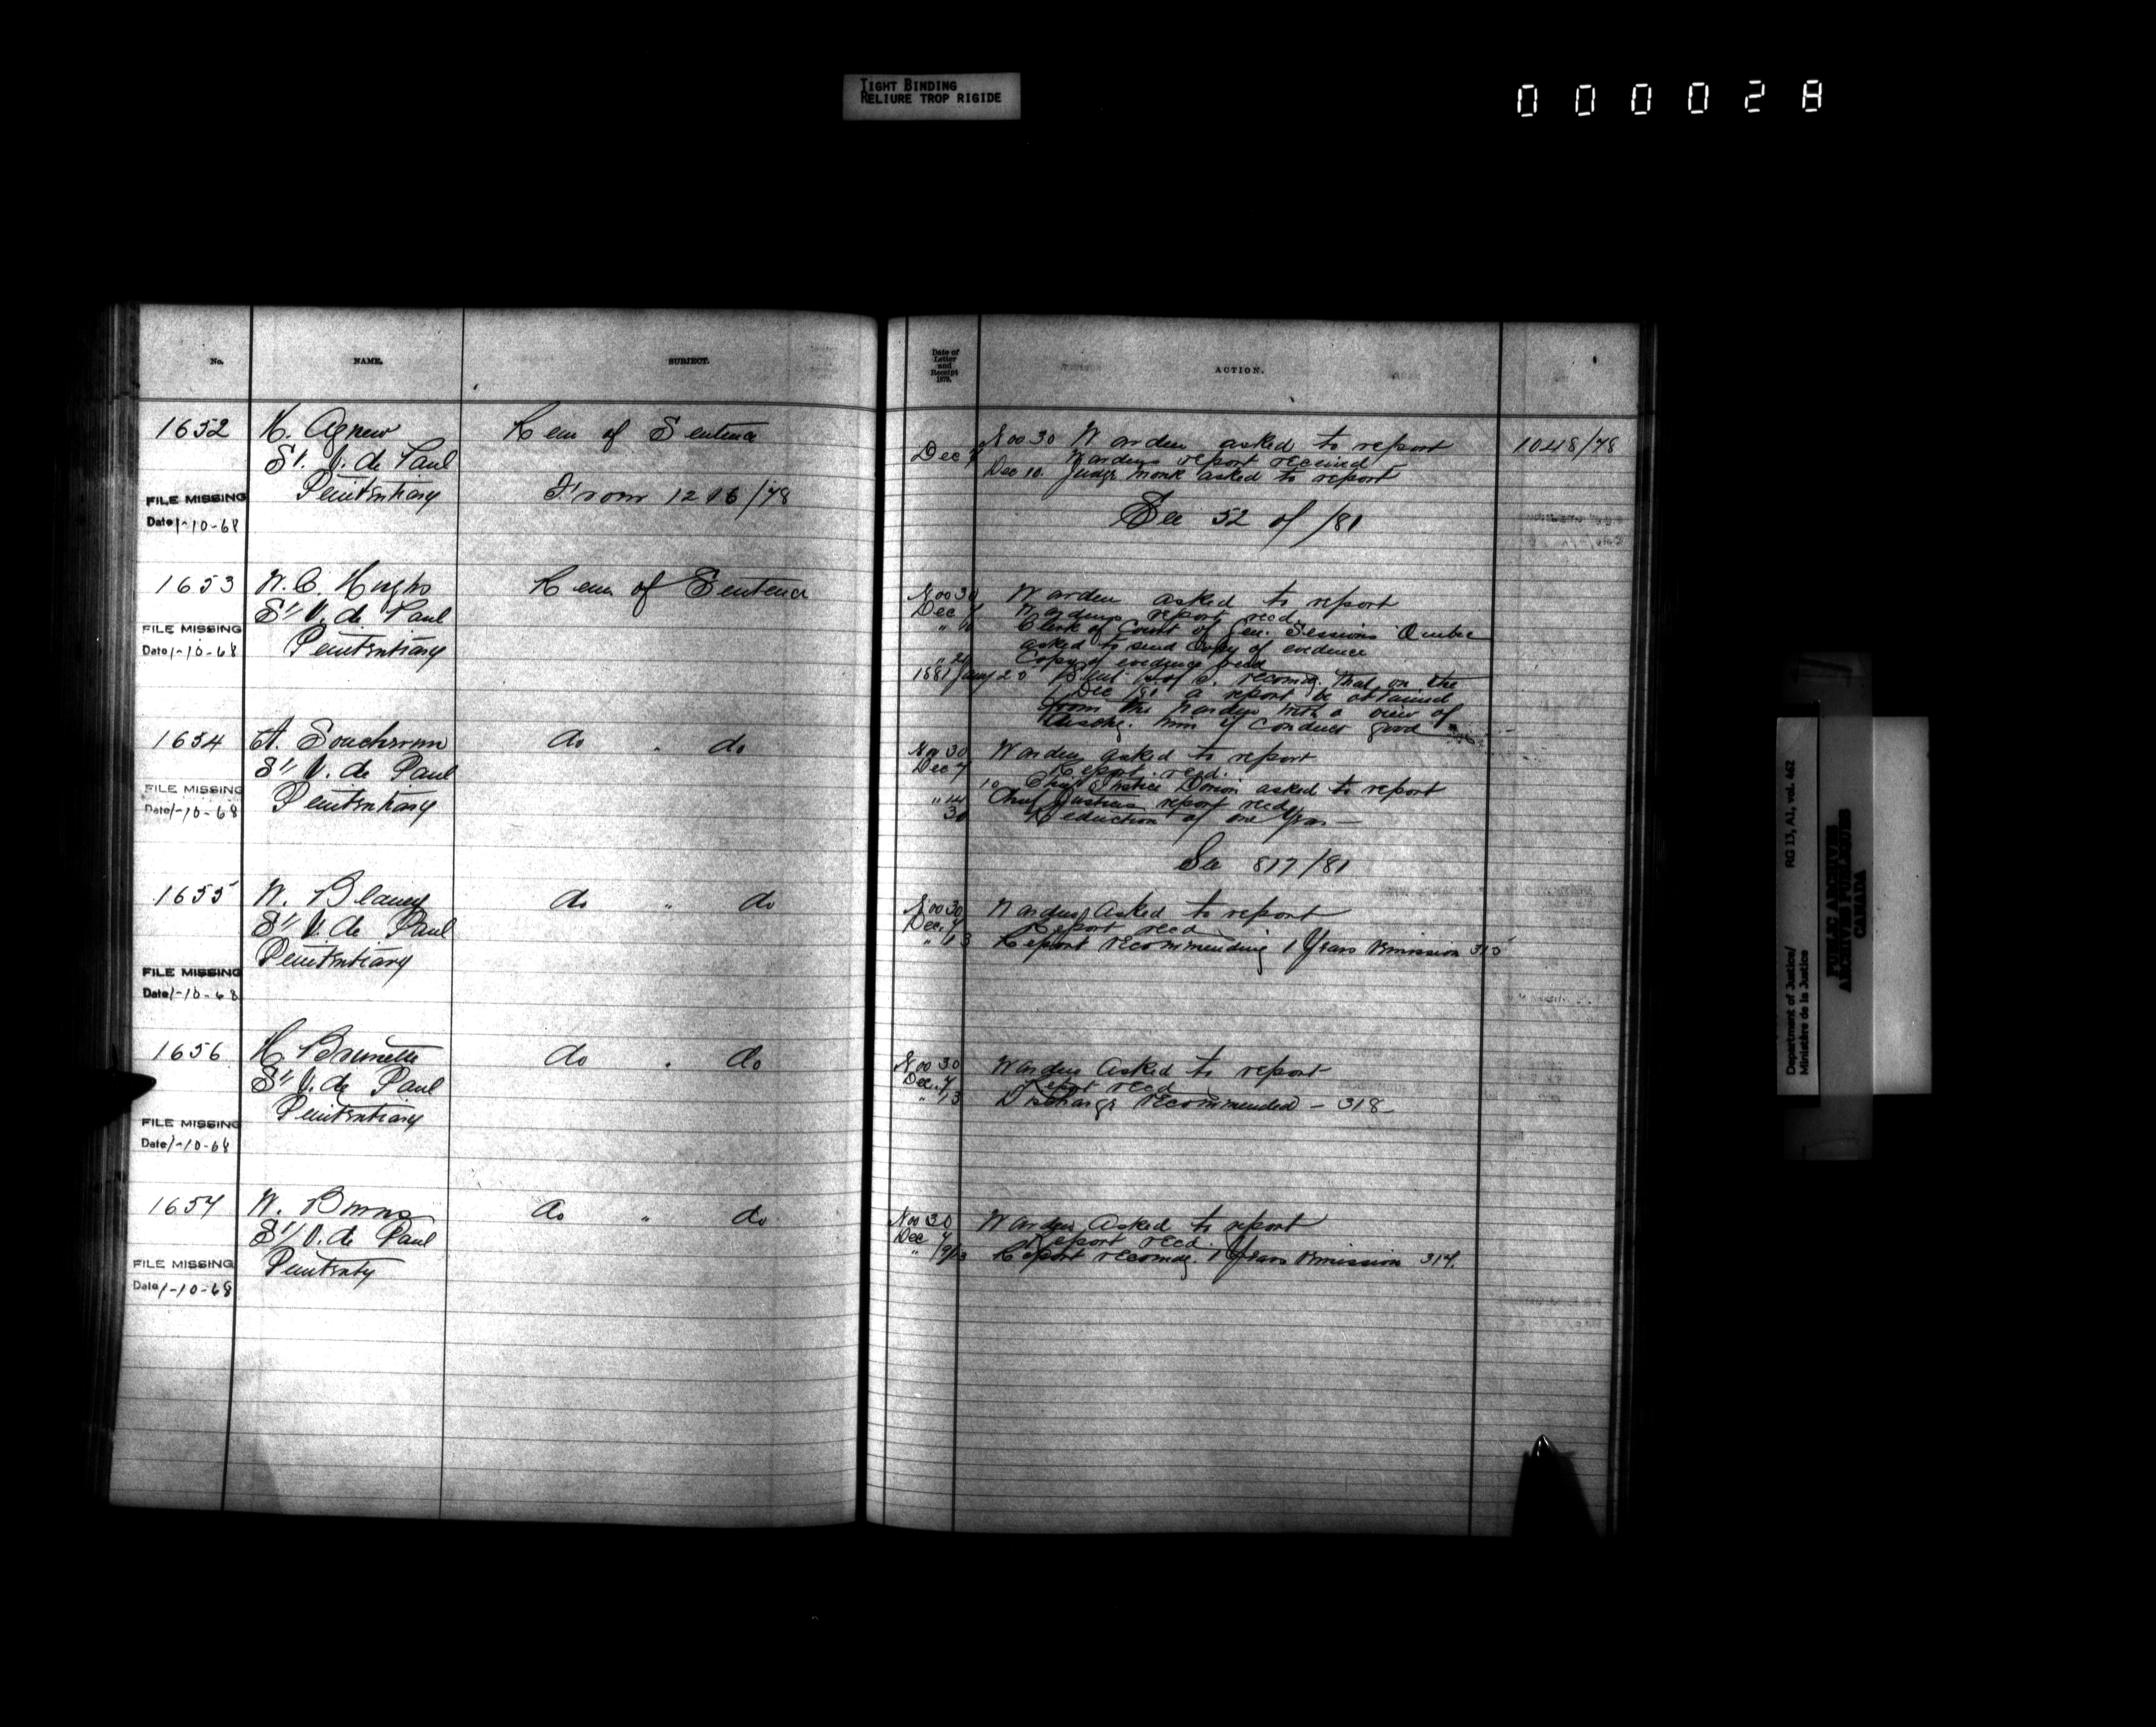 TIGHT BINDING
RELIURE TROP RIGIDE
000028
No. NAME. SUBJECT.
1652 H. Agnew Rem of Sentence
St. V. de Paul
Penitentiary From 1216/78
FILE MISSING
Date 1-10-68
1653 W. C. Hughs Rem of Sentence
St. V. de Paul
FILE MISSING Penitentiary
Date 1-10-68
1654 A. do " do
St. V. de Paul
FILE MISSING Penitentiary
Date 1-10-68
1655 W. Blaney do " do
St. V. de Paul
Penitentiary
FILE MISSING
Date 1-10-68
1656 H. Brunette do " do
St. V. de Paul
Penitentiary
FILE MISSING
Date 1-10-68
1657 W. Burns do " do
St. V. de Paul
FILE MISSING Penitenty
Date 1-10-68
Date of
Letter
and
Receipt
1879.
ACTION.
Nov 30 Warden asked to report 1048/78
Dec 7 Wardens report received
Dec 10. Judge Monk asked to report
See 52 of /81
Nov 30 Warden asked to report
Dec 7 Wardens report recd.
" 10 Clerk of Court of Gen. Sessions Quebec
asked to send copy of evidence
" 20 Copy of evidence recd
1881 Jany 20 recomdg. that on the
Dec /81 a report be obtained
from the Warden with a view of
dischg. him if conduct good
Nov 30 Warden asked to report
Dec 7 Report recd.
10 Chief Justice Dorion asked to report
" 14 Chief Justices report recd
30 Reduction of one year —
See 817/81
Nov 30 Warden asked to report
Dec. 7 Report recd
" 13 Report recommending 1 Years remission 315
Nov 30 Warden asked to report
Dec. 7 Report recd
" 13 Discharge recommended — 318
Nov 30 Warden asked to report
Dec 7 Report recd.
" 13 Report recomdg. 1 Years remission 317.
Department of Justice/ RG 13, A1, vol. 462
Ministère de la Justice
PUBLIC ARCHIVES
ARCHIVES PUBLIQUES
CANADA